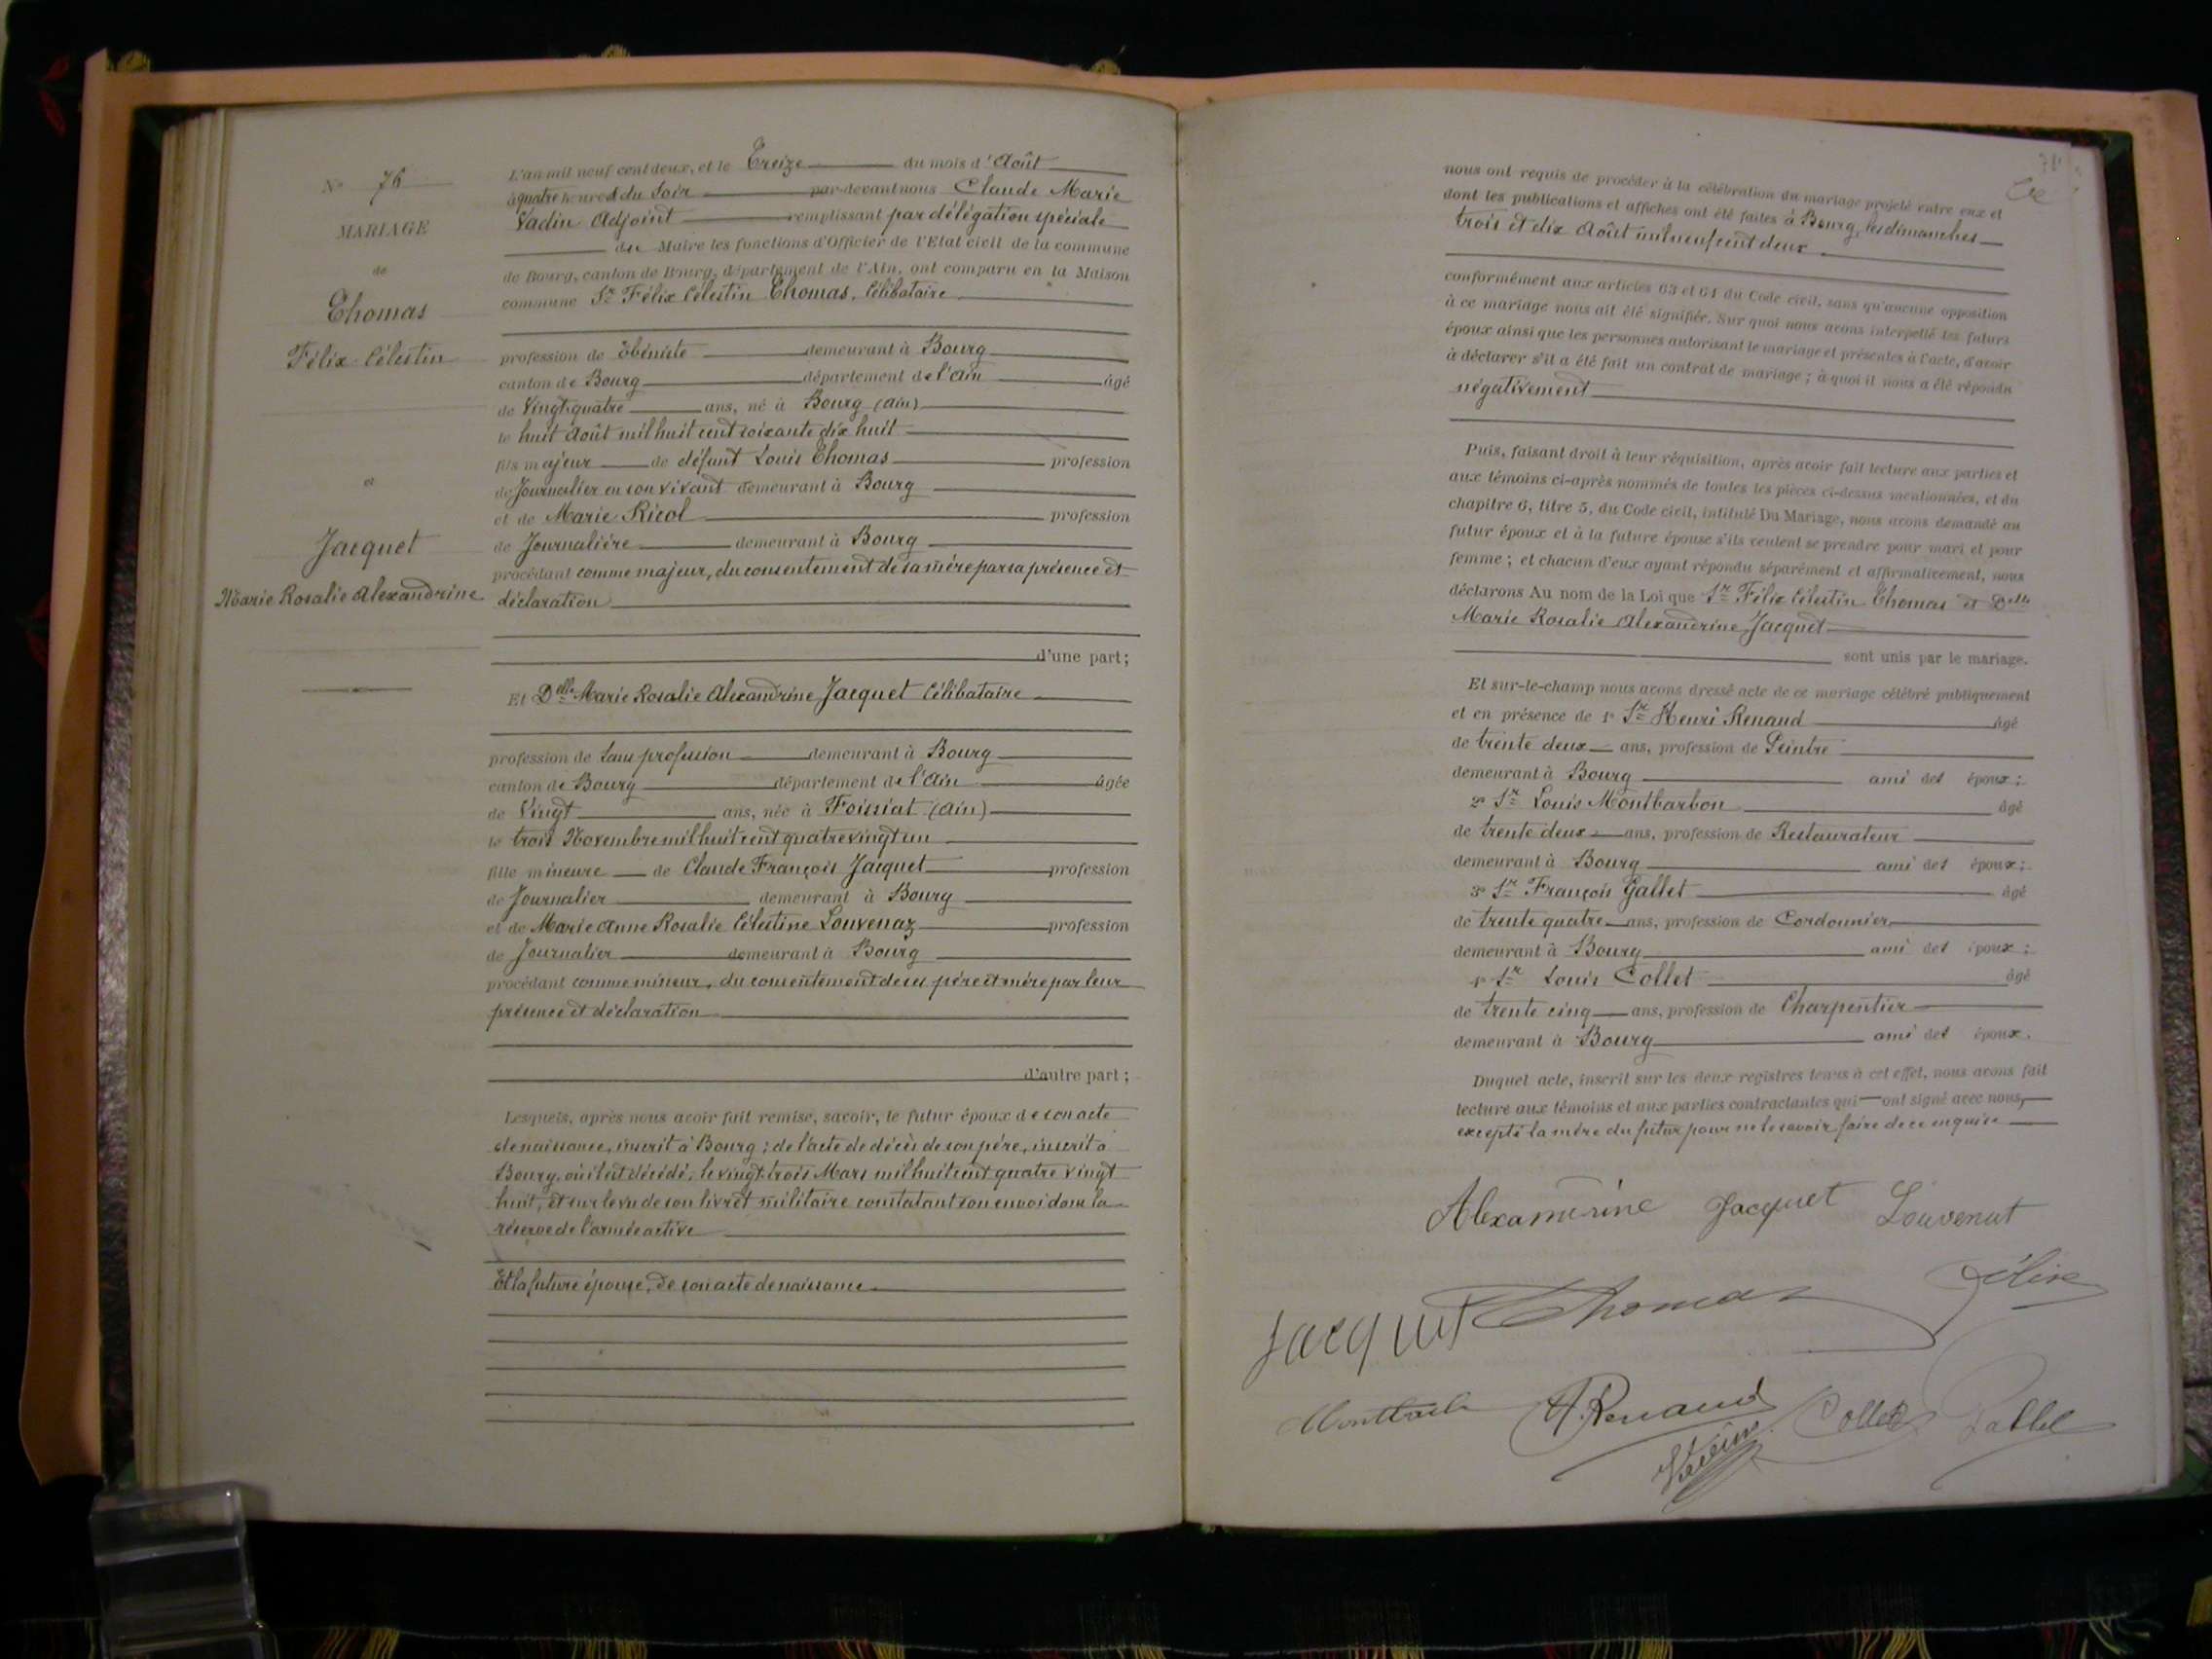 N° 76
MARIAGE
de
Thomas
Félix Célestin
et
Jacquet
Marie Rosalie Alexandrine
L'an mil neuf cent deux, et le Treize du mois d'Août
à quatre heures du Soir par-devant nous Claude Marie
Vadin Adjoint remplissant par délégation spéciale
du Maire les fonctions d'Officier de l'Etat civil de la commune
de Bourg, canton de Bourg, département de l'Ain, ont comparu en la Maison
commune Sr Félix Célestin Thomas, Célibataire
profession de Ebéniste demeurant à Bourg
canton de Bourg département de l'Ain âgé
de Vingt quatre ans, né à Bourg (Ain)
le huit Août mil huit cent soixante dix huit
fils majeur de défunt Louis Thomas profession
de Journalier en son vivant demeurant à Bourg
et de Marie Ricol profession
de Journalière demeurant à Bourg
procédant comme majeur, du consentement de sa mère par sa présence et
déclaration
d'une part;
Et Delle Marie Rosalie Alexandrine Jacquet Célibataire
profession de Sans profession demeurant à Bourg
canton de Bourg département de l'Ain âgée
de Vingt ans, née à Foissiat (Ain)
le trois Novembre mil huit cent quatre vingt un
fille mineure de Claude François Jacquet profession
de Journalier demeurant à Bourg
et de Marie Anne Rosalie Célestine Louvenaz profession
de Journalier demeurant à Bourg
procédant comme mineur, du consentement de ses père et mère par leur
présence et déclaration
d'autre part;
Lesquels, après nous avoir fait remise, savoir, le futur époux de son acte
de naissance, inscrit à Bourg; de l'acte de décès de son père, inscrit à
Bourg, où il est décédé, le vingt trois Mars mil huit cent quatre vingt
huit, et sur le vu de son livret militaire constatant son envoi dans la
réserve de l'armée active
Et la future épouse, de son acte de naissance
nous ont requis de procéder à la célébration du mariage projeté entre eux et
dont les publications et affiches ont été faites à Bourg, les dimanches
trois et dix Août mil neuf cent deux
conformément aux articles 63 et 64 du Code civil, sans qu'aucune opposition
à ce mariage nous ait été signifiée. Sur quoi nous avons interpellé les futurs
époux ainsi que les personnes autorisant le mariage et présentes à l'acte, d'avoir
à déclarer s'il a été fait un contrat de mariage; à quoi il nous a été répondu
négativement
Puis, faisant droit à leur réquisition, après avoir fait lecture aux parties et
aux témoins ci-après nommés de toutes les pièces ci-dessus mentionnées, et du
chapitre 6, titre 5, du Code civil, intitulé Du Mariage, nous avons demandé au
futur époux et à la future épouse s'ils veulent se prendre pour mari et pour
femme; et chacun d'eux ayant répondu séparément et affirmativement, nous
déclarons Au nom de la Loi que Sr Félix Célestin Thomas et Delle
Marie Rosalie Alexandrine Jacquet
sont unis par le mariage.
Et sur-le-champ nous avons dressé acte de ce mariage célébré publiquement
et en présence de 1° Sr Henri Renaud âgé
de trente deux ans, profession de Peintre
demeurant à Bourg ami des époux;
2° Sr Louis Montbarbon âgé
de trente deux ans, profession de Restaurateur
demeurant à Bourg ami des époux;
3° Sr François Gallet âgé
de trente quatre ans, profession de Cordonnier
demeurant à Bourg ami des époux;
4° Sr Louis Collet âgé
de trente cinq ans, profession de Charpentier
demeurant à Bourg ami des époux.
Duquel acte, inscrit sur les deux registres tenus à cet effet, nous avons fait
lecture aux témoins et aux parties contractantes qui ont signé avec nous,
excepté la mère du futur pour ne le savoir faire de ce enquise
Alexandrine Jacquet Louvenat
Jacquet Thomas Félix
H. Renaud Collet Gallet
Vadin